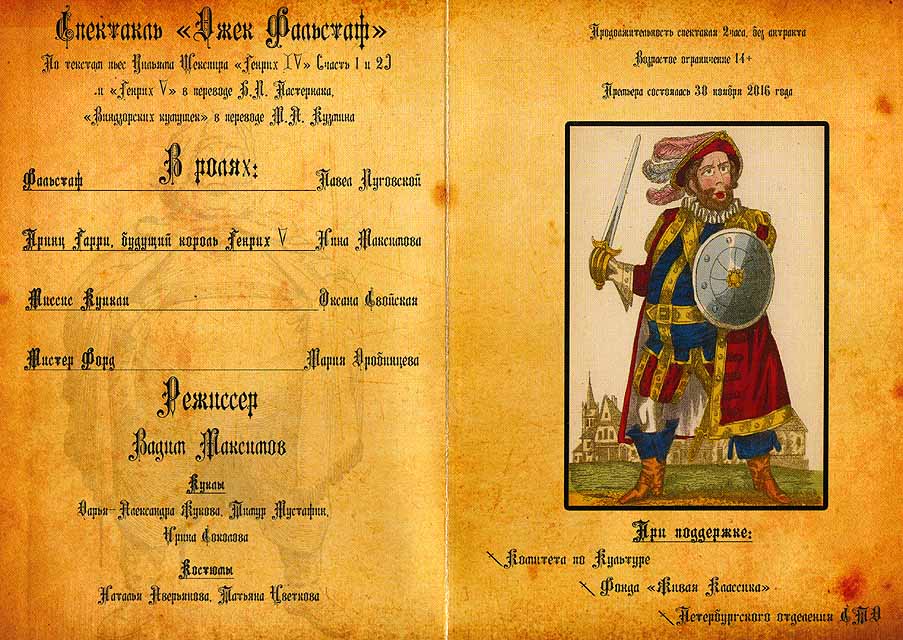 Спектакль «Джек Фальстаф»
По текстам пьес Уильяма Шекспира «Генрих IV» (часть 1 и 2)
и «Генрих V» в переводе Б.Л. Пастернака,
«Виндзорских кумушек» в переводе М.А. Кузмина
В ролях:
Фальстаф Павел Луговской
Принц Гарри, будущий король Генрих V Нина Максимова
Миссис Куикли Оксана Свойская
Мистер Форд Мария Дробинцева
Режиссер
Вадим Максимов
Куклы
Дарья-Александра Жукова, Тимур Мустафин,
Ирина Соколова
Костюмы
Наталья Аверьянова, Татьяна Цветкова
Продолжительность спектакля 2часа, без антракта
Возрастное ограничение 14+
Премьера состоялась 30 ноября 2016 года
При поддержке:
Комитета по Культуре
Фонда «Живая Классика»
Петербургского отделения СТД